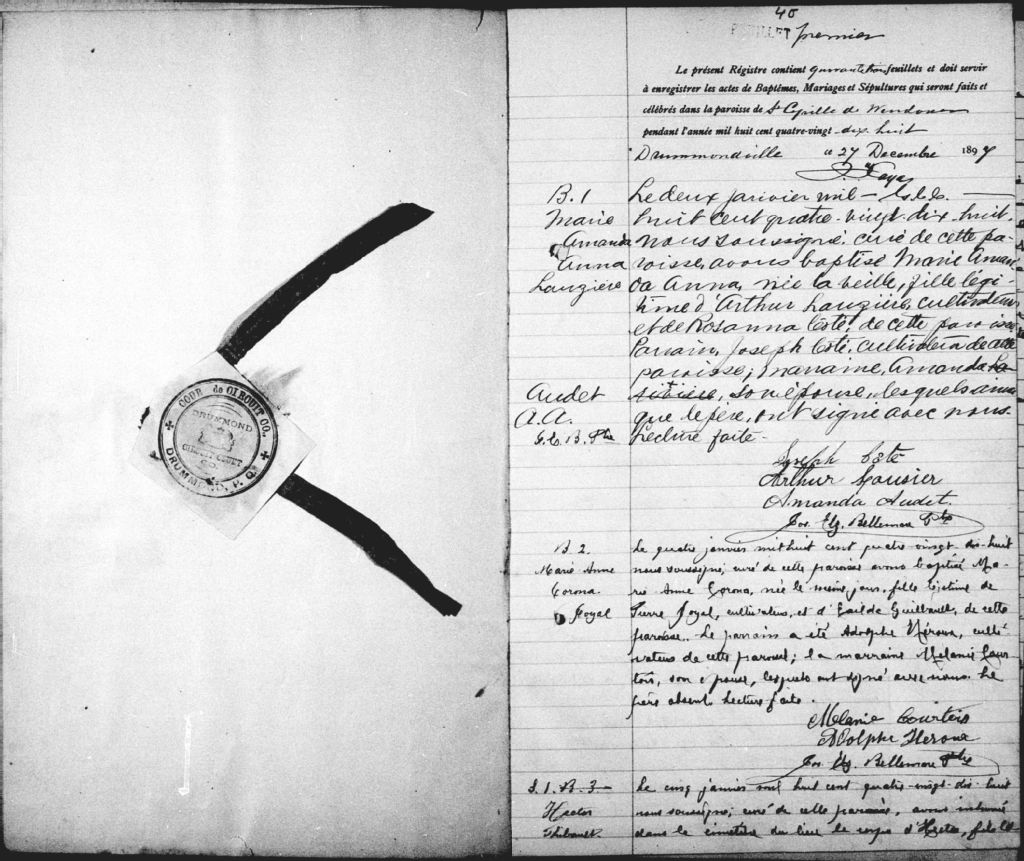 COUR de CIRCUIT CO.
DRUMMOND
CIRCUIT COURT
CO.
DRUMMOND, P. Q.
40
FEUILLET premier
Le présent Régistre contient quarante feuillets et doit servir
à enregistrer les actes de Baptêmes, Mariages et Sépultures qui seront faits et
célébrés dans la paroisse de St Cyrille de Wendover
pendant l'année mil huit cent quatre-vingt dix huit
Drummondville ce 27 Decembre 1897
B. 1
Marie
Amanda
Anna
Lauzière
Le deux janvier mil
huit cent quatre-vingt-dix-huit,
nous soussigné, curé de cette pa-
roisse, avons baptisé Marie Aman
da Anna, née la veille, fille légi-
time d'Arthur Lauzière, cultivateur
et de Rosanna Coté, de cette paroisse
Parrain, Joseph Coté, cultivateur de cette
paroisse; marraine, Amanda
son épouse, lesquels ainsi
que le père, ont signé avec nous.
Lecture faite.
Audet
A. A.
J. E. B. Ptre
Joseph Coté
Arthur Lousier
Amanda Audet.
Jos. Elz. Bellemare Ptre
B 2.
Marie Anne
Corona
Joyal
Le quatre janvier mil huit cent quatre-vingt-dix-huit
nous soussigné, curé de cette paroisse avons baptisé Ma-
rie Anne Corona, née le même jour, fille légitime de
Pierre Joyal, cultivateur, et d'Exilda Guilbault, de cette
paroisse. Le parrain a été Adolphe Héroux, culti-
vateur de cette paroisse; la marraine Mélanie Cour-
tois, son épouse, lesquels ont signé avec nous. Le
père absent. Lecture faite.
Melanie Courtois
Adolphe Heroux
Jos. Elz. Bellemare Ptre
S. 1. B. 3
Hector
Thibault
Le cinq janvier mil huit cent quatre-vingt-dix-huit
nous soussigné, curé de cette paroisse, avons inhumé
dans le cimetière du lieu le corps d'Hector, fils